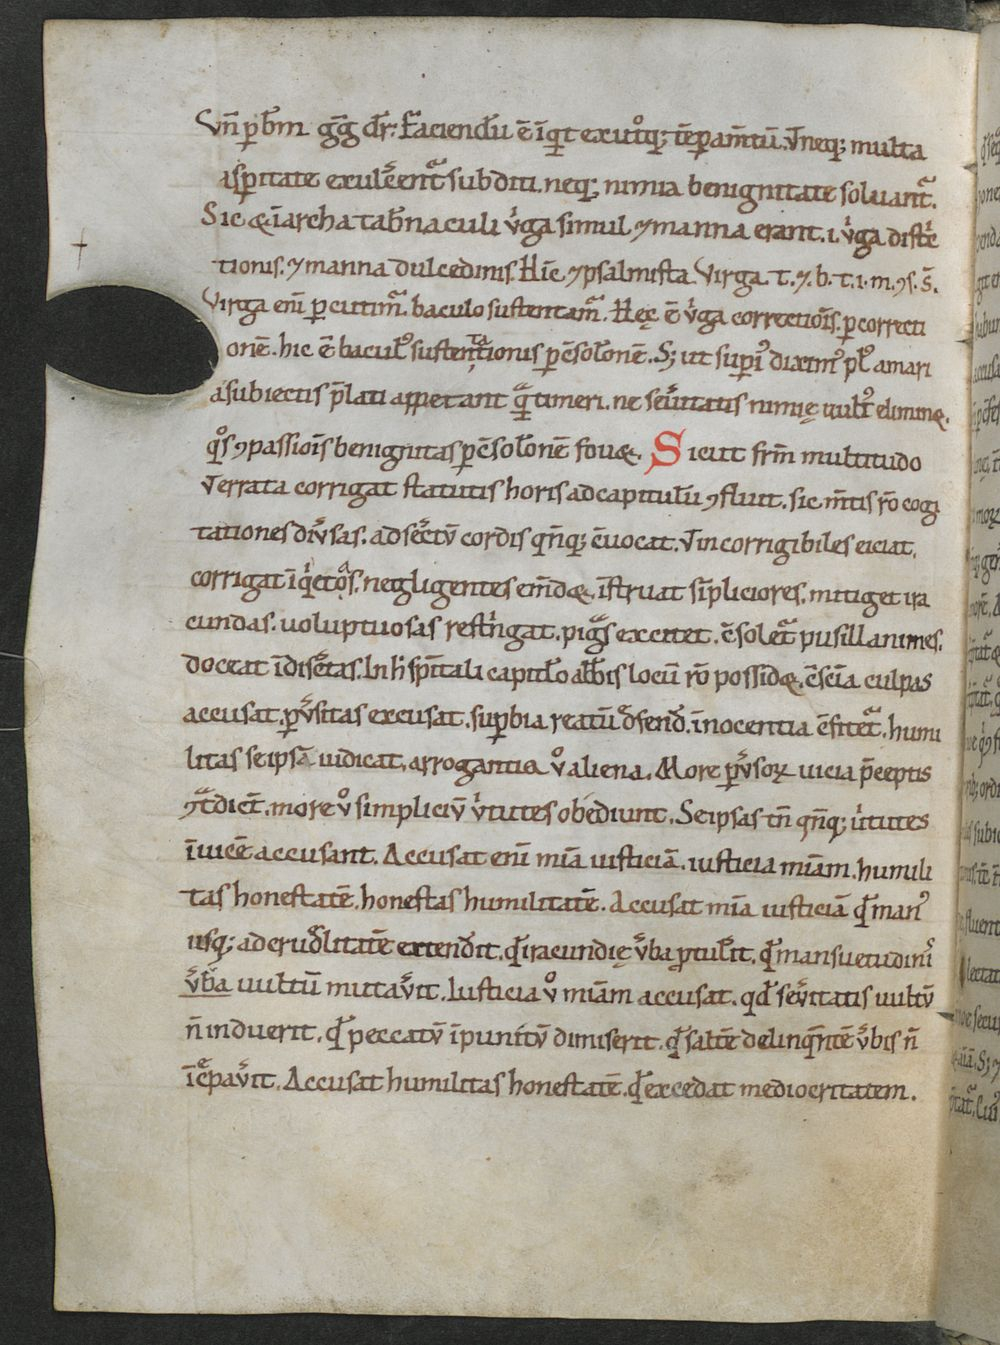 Vn̄ ꝑ bm̄ gḡ dr̄: Faciendū ē īqͥt ex utͦqꝫ; tēꝑam̄tū. Vneqꝫ; multa
asꝑitate exulc̄ent᷑ subditi. neqꝫ; nimia benignitate soluant᷑.
Sic & ī archa tab̄naculi uͥga simul ⁊ manna erant. i. uͥga distͥc
tionis. ⁊ manna dulcedinis. Hīc ⁊ psalmista Virga. t. ⁊. b. t. i. m. ꝯs. s̄.
Virga enī ꝑcutim᷑. baculo sustentam᷑. Hęc ē uͥga correctiōis. ꝑ correcti
onē. hic ē baculꝰ sustentationis ꝑ ꝯsolonē. Sꝫ ut supiꝰ diximꝰ plꝰ amari
a subiectis p̄lati appetant qͣ timeri. ne seu̓itatis nimię uultꝰ eliminę.
qͦs ꝯpassiōis benignitas ꝑ ꝯsolonē fou&. Sicut frm̄ multitudo
Verrata corrigat statutis horis ad capitulū ꝯfluit. sic m̄tis rō cogi
tationes diu̓sas. ad sec̄tū cordis qn̄qꝫ; ꝯuocat. Vincorrigibiles eiciat.
corrigat īqͥetas. negligentes em̄d&. īstruat sīpliciores. mitiget ira
cundas. uoluptuosas restͥngat. pigͣs excitet. ꝯsolet᷑ pusillanimes.
doceat īdisc̄tas. In h̄ sp̄itali capitlo abb̄is locū rō possid&. ꝯscīa culpas
accusat. ꝑu̓sitas excusat. suꝑbia reatū defend̄. īnocentia ꝯfitet᷑. humi
litas seipsā iudicat. arrogantia uͦ aliena. More ꝑu̓soꝝ uicia p̄ceptis
ꝯtͣdicn̄t. more uͦ simpliciū uͥtutes obediunt. Seipsas tn̄ qn̄qꝫ; uͥtutes
īuicē accusant. Accusat enī mīa iusticiā. iusticia mīam. humili
tas honestatē. honestas humilitatē. Accusat mīa iusticiā qd̄ manꝰ
usqꝫ; ad crudelitatē extend̓it. qd̄ iracundię uͤba ꝑtulit. qd̄ mansuetudiniꝰ
uͤba uultū mutau̓it. Iusticia uͦ mīam accusat. qd̄ seu̓itatis uultū
n̄ induerit. qd̄ peccatū īpunitū dimiserit. qd̄ saltē delinqn̄tē uͤbis n̄
īc̄pau̓it. Accusat humilitas honestatē. qd̄ excedat mediocritatem.